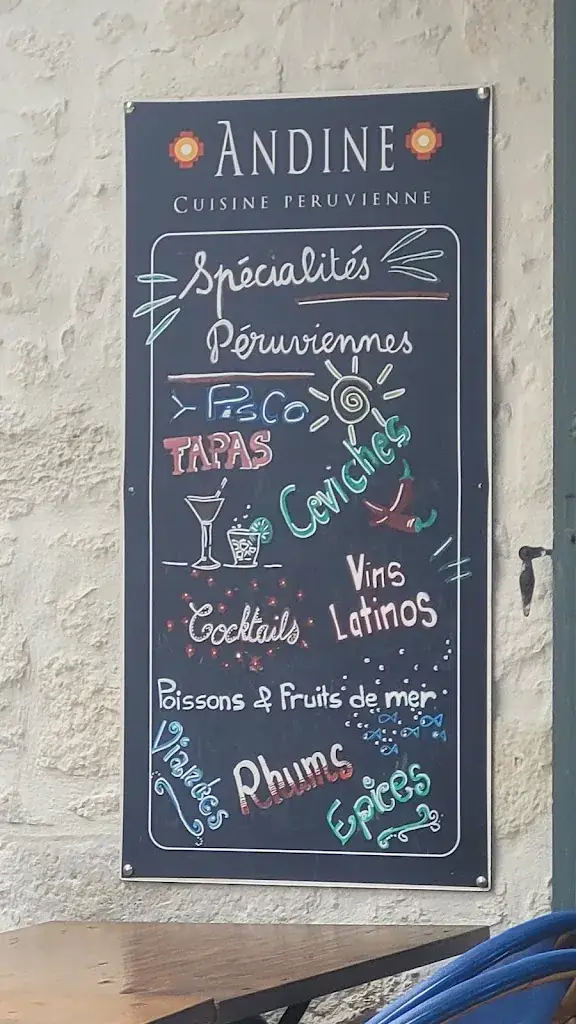 ANDINE
CUISINE PERUVIENNE
Spécialités
Péruviennes
Pisco
TAPAS
Ceviches
Vins
Latinos
Cocktails
Poissons & Fruits de mer
Viandes
Rhums
Epices